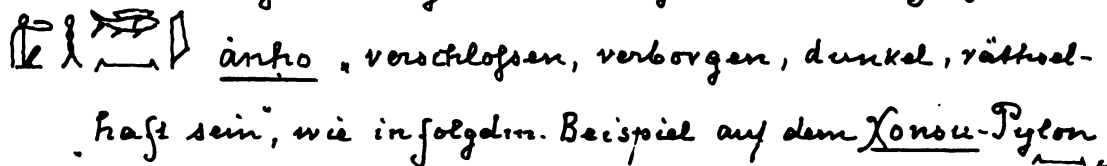 ȧnḥo „verschlossen, verborgen, dunkel, räthsel-
haft sein“, wie in folgdm. Beispiel auf dem Χonsu-Pylon